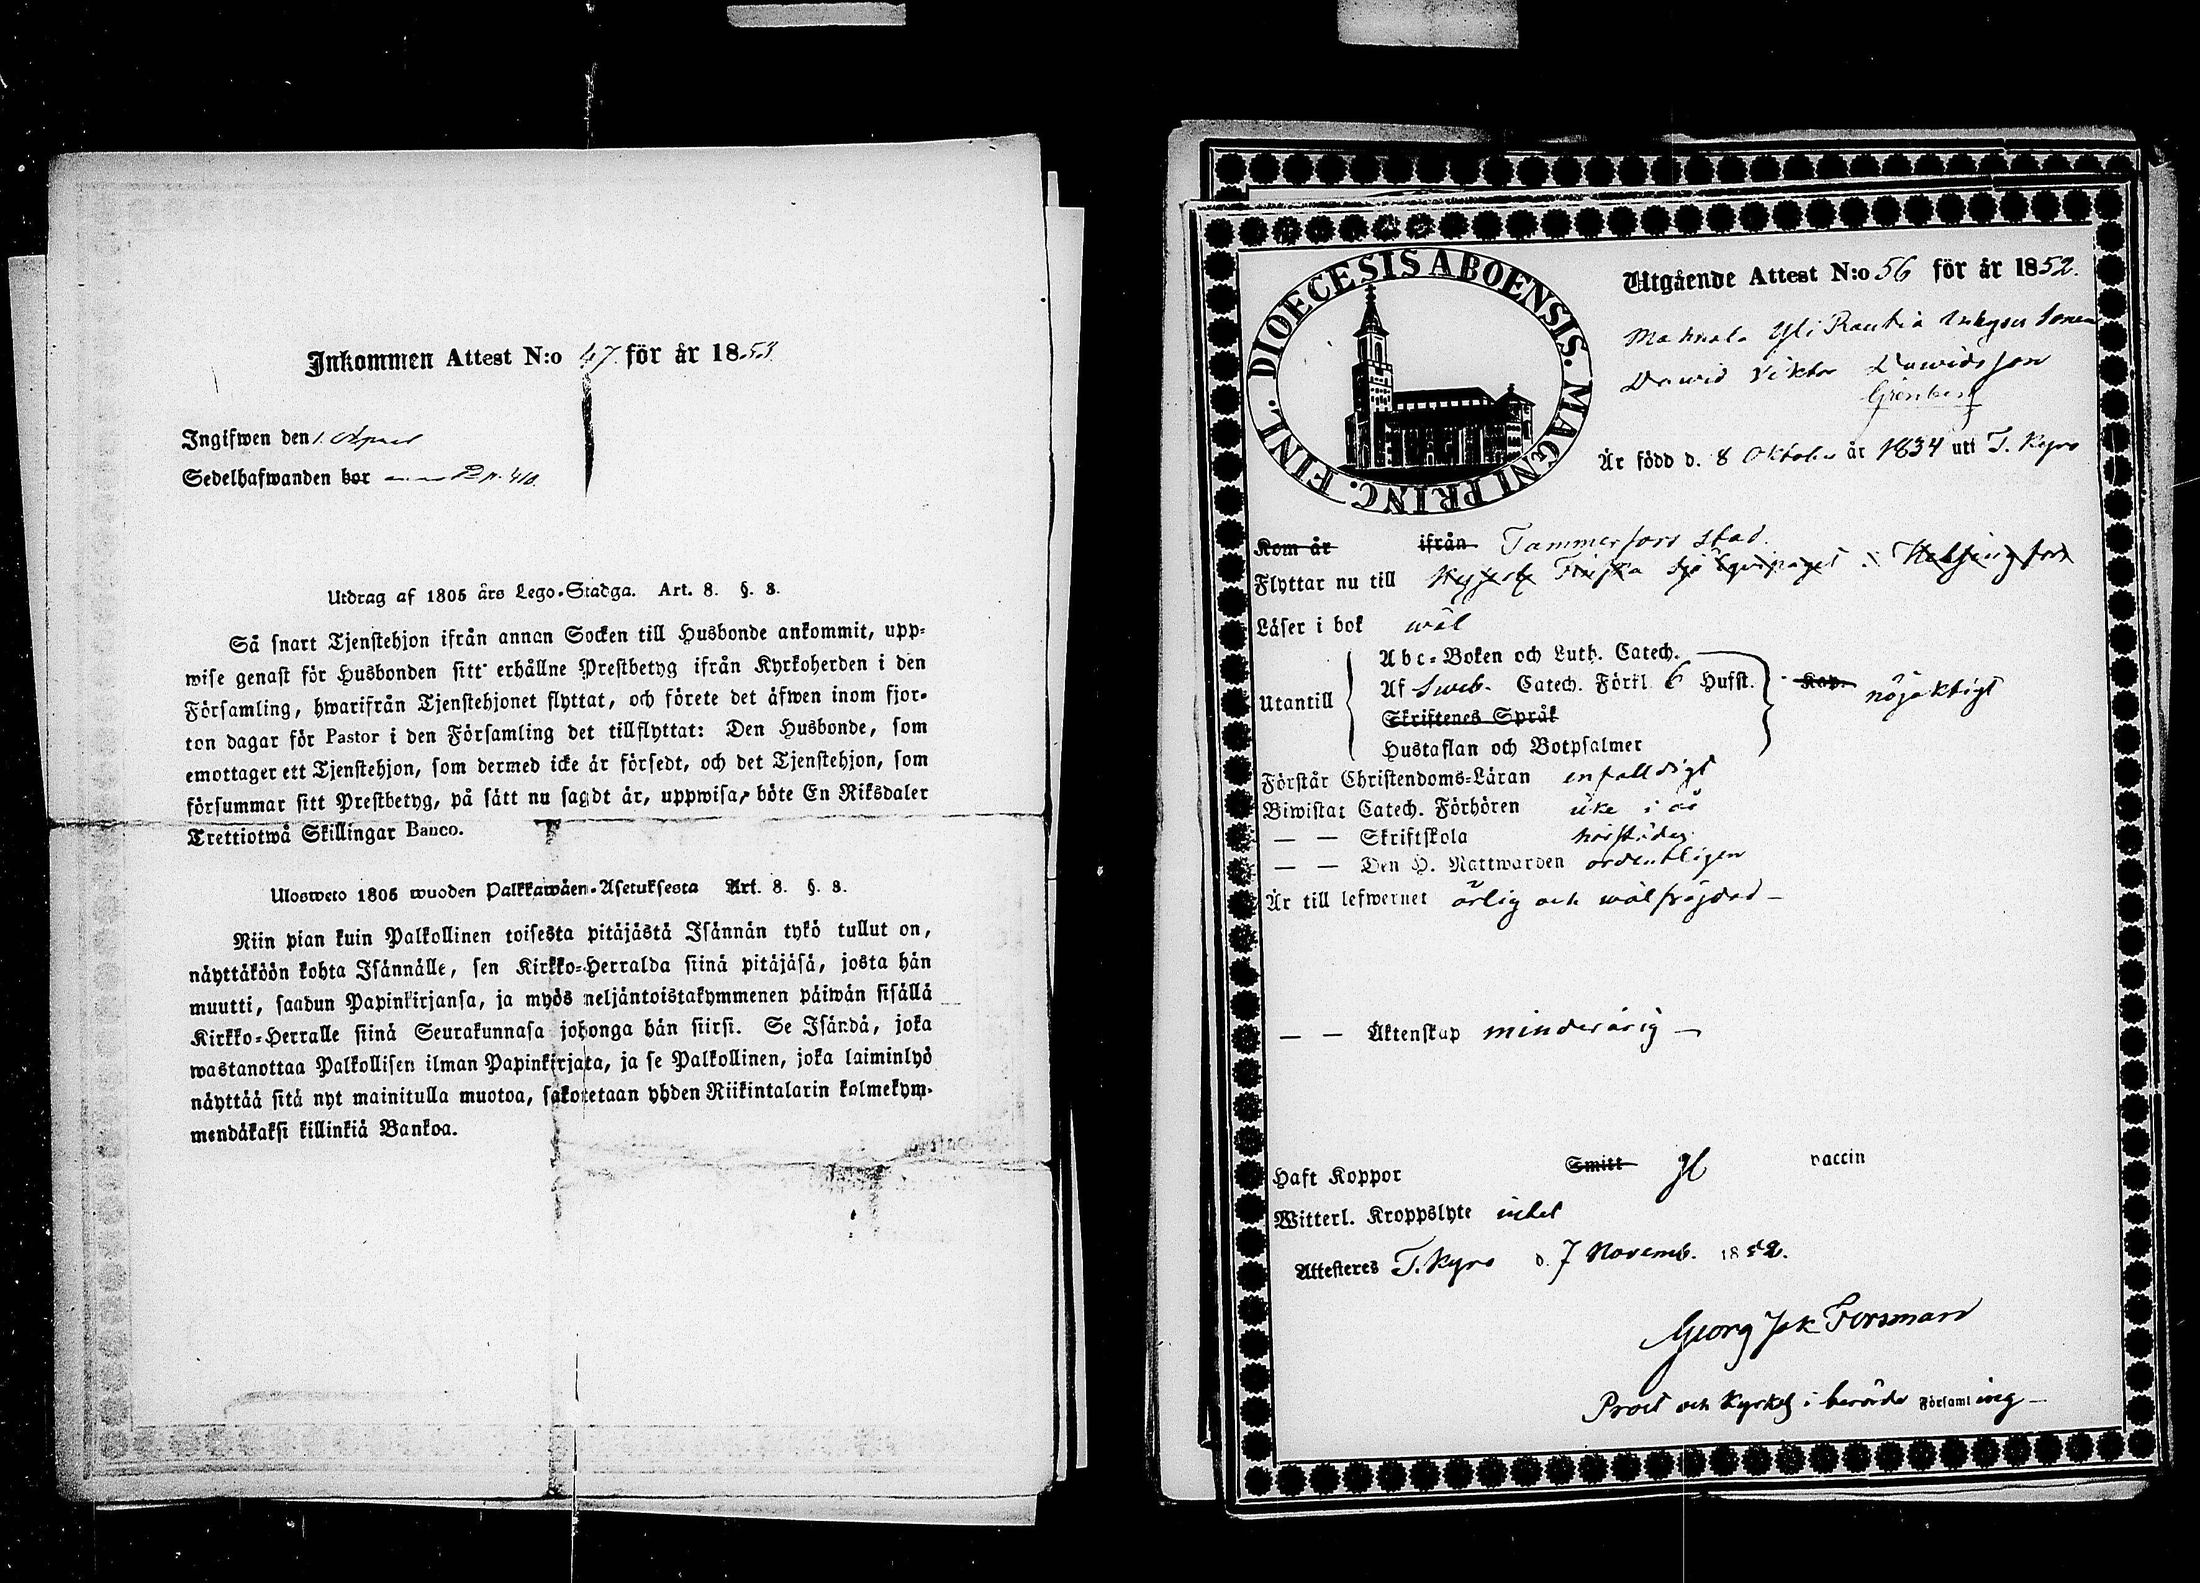 Inkommen Attest N:o 47 för år 1853
Ingifwen den 1. April
Sedelhafwanden bor N. 410.
Utdrag af 1805 års Lego-Stadga. Art. 8. §. 8.
Så snart Tjenstehjon ifrån annan Socken till Husbonde ankommit, upp-
wise genast för Husbonden sitt erhållne Prestbetyg ifrån Kyrkoherden i den
Församling, hwarifrån Tjenstehjonet flyttat, och förete det äfwen inom fjor-
ton dagar för Pastor i den Församling det tillflyttat: Den Husbonde, som
emottager ett Tjenstehjon, som dermed icke är försedt, och det Tjenstehjon, som
försummar sitt Prestbetyg, på sätt nu sagdt är, uppwisa, böte En Riksdaler
Trettiotwå Skillingar Banco.
Ulosweto 1805 wuoden Palkkawäen-Asetuksesta Art. 8. §. 8.
Niin pian kuin Palkollinen toisesta pitäjästä Isännän tykö tullut on,
näyttäköön kohta Isännälle, sen Kirkko-Herralda siinä pitäjäsä, josta hän
muutti, saadun Papinkirjansa, ja myös neljäntoistakymmenen päiwän sisällä
Kirkko-Herralle siinä Seurakunnasa johonga hän siirsi. Se Isändä, joka
wastanottaa Palkollisen ilman Papinkirjata, ja se Palkollinen, joka laiminlyö
näyttää sitä nyt mainitulla muotoa, sakotetaan yhden Riikintalarin kolmekym-
mendäkaksi killinkiä Bankoa.
DIOECESIS ABOENSIS. MAGNI PRINC. FINL.
Utgående Attest N:o 56 för år 1852.
Mahnala Yli Rautia Inhyses Sonen
Dawid Viktor Dawidsson
Grönberg
Är född d. 8 Oktober år 1834 uti T. Kyro
Kom år ifrån Tammerfors stad.
Flyttar nu till Finska Sjö Equipaget i Helsingfors
Läser i bok wäl
Utantill
Abc-Boken och Luth. Catech.
Af Sweb. Catech. Förkl. 6 Hufst. Kap. nöjaktigt
Skriftenes Språk
Hustaflan och Botpsalmer
Förstår Christendoms-Läran enfalldigt
Biwistat Catech. Förhören icke i år
— — Skriftskola
— — Den H. Nattwarden ordentligen
Är till lefwernet ärlig och wälfrägdad —
— — Äktenskap minderårig —
Haft Koppor Smitt vaccin
Witterl. Kroppslyte intet
Attesteres T. Kyro d. 7 Novemb. 1852.
Georg Jak Forsman
Prost och Kyrkoh i berörde Församling —